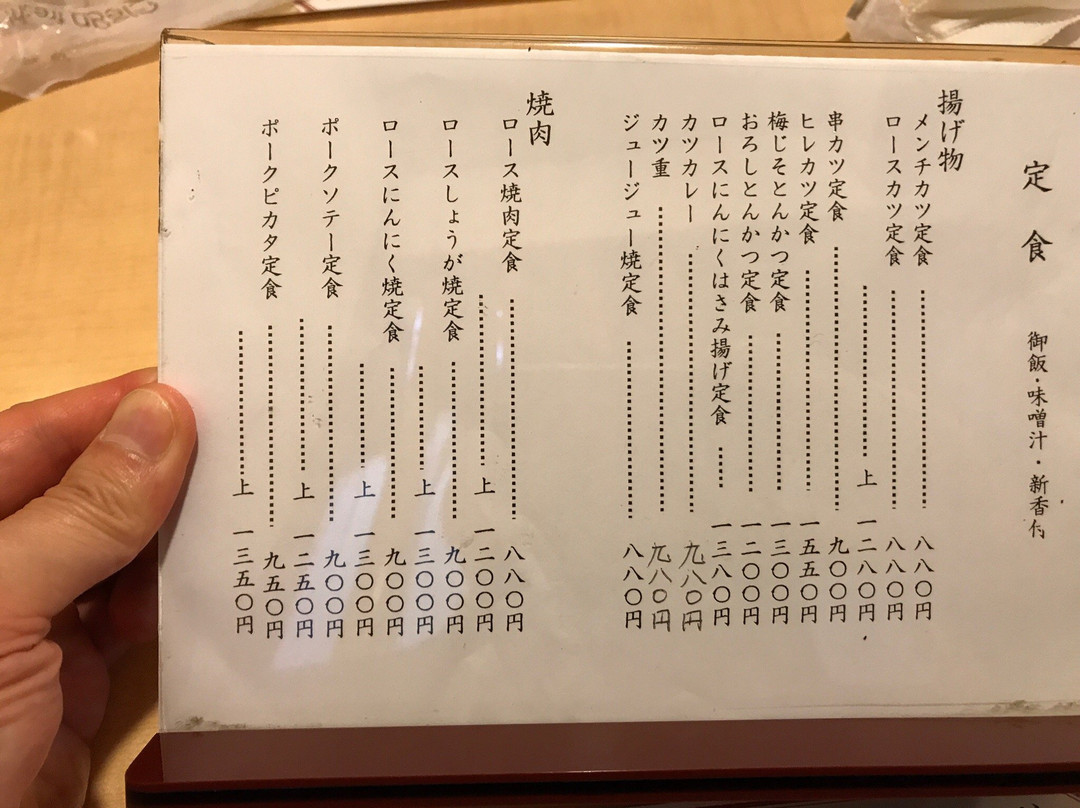 定食 御飯・味噌汁・新香付
揚げ物
メンチカツ定食 八八〇円
ロースカツ定食 八八〇円
上 一二八〇円
串カツ定食 九〇〇円
ヒレカツ定食 一五五〇円
梅じそとんかつ定食 一三〇〇円
おろしとんかつ定食 一二〇〇円
ロースにんにくはさみ揚げ定食 一三八〇円
カツカレー 九八〇円
カツ重 九八〇円
ジュージュー焼定食 八八〇円
焼肉
ロース焼肉定食 八八〇円
上 一二〇〇円
ロースしょうが焼定食 九〇〇円
上 一三〇〇円
ロースにんにく焼定食 九〇〇円
上 一三〇〇円
ポークソテー定食 九〇〇円
上 一二五〇円
ポークピカタ定食 九五〇円
上 一三五〇円